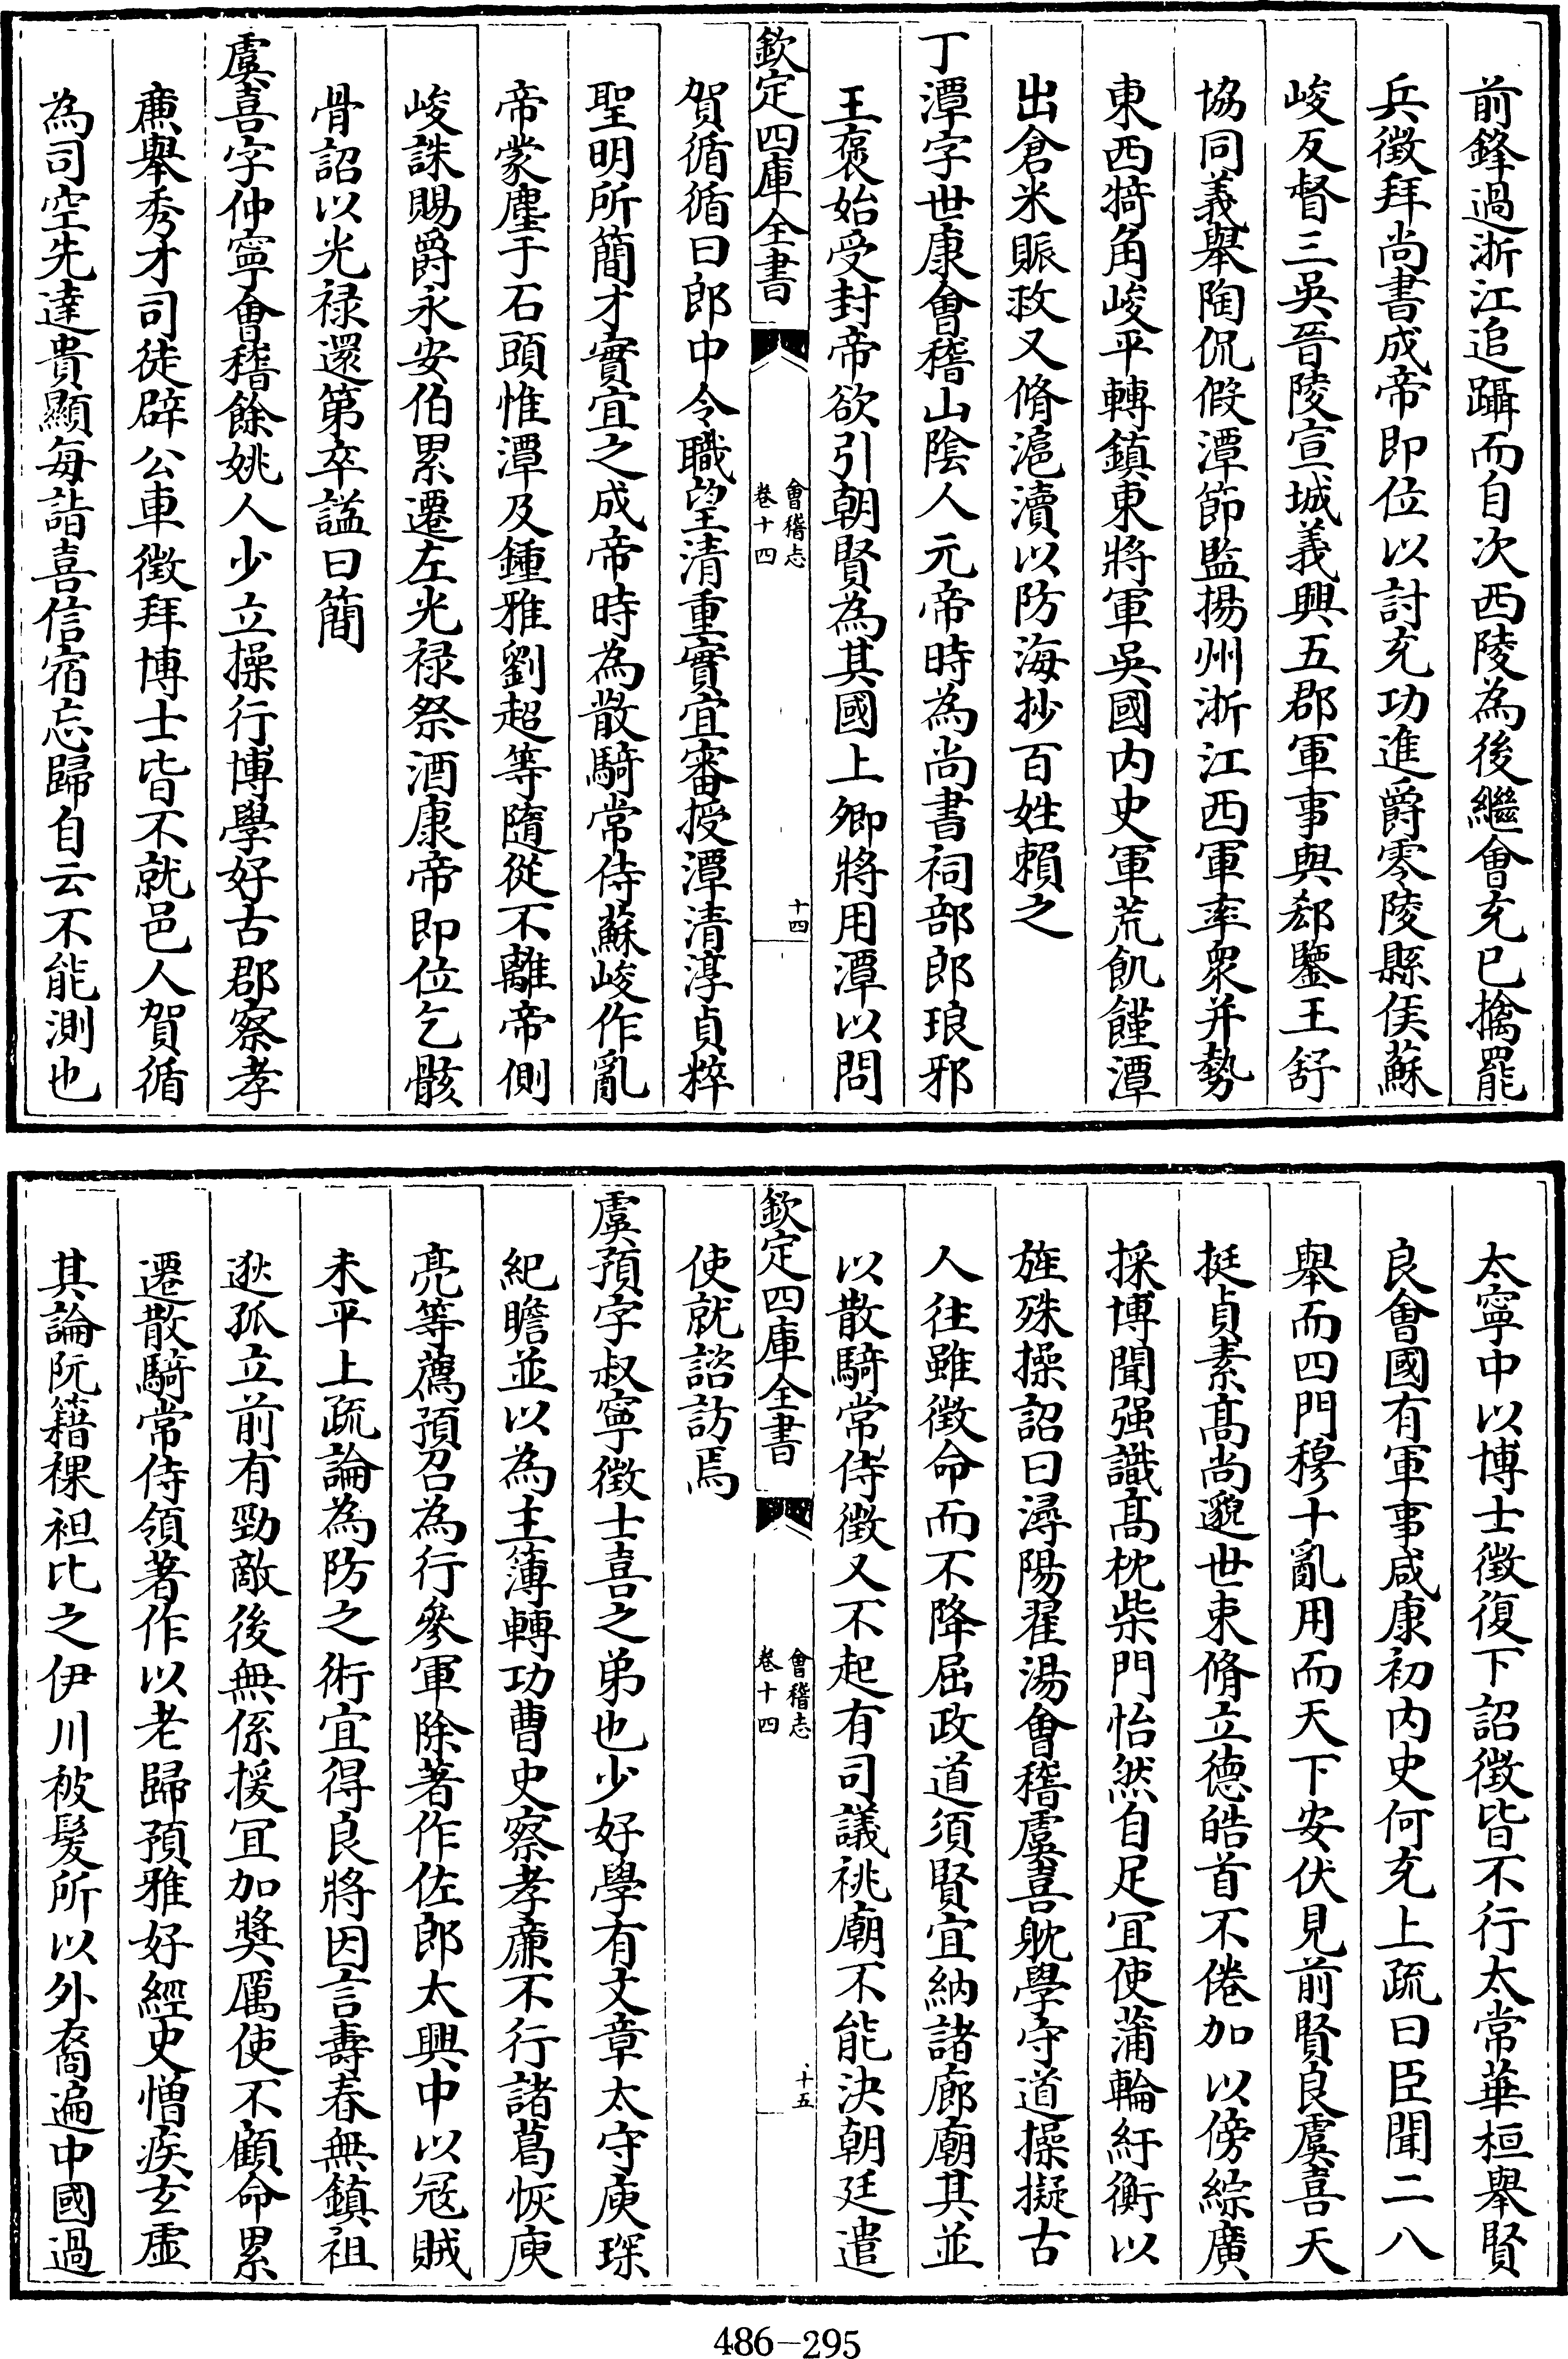 前鋒過浙江追躡而自次西陵為後繼會充已擒罷
兵徵拜尚書成帝即位以討充功進爵零陵縣侯蘇
峻反督三吳晉陵宣城義興五郡軍事與郄鑒王舒
協同義舉陶侃假潭節監揚州浙江西軍率衆并勢
東西犄角峻平轉鎮東將軍吳國内史軍荒飢饉潭
出倉米賑救又脩滬瀆以防海抄百姓賴之
丁潭字世康會稽山陰人元帝時為尚書祠部郎琅邪
王裒始受封帝欲引朝賢為其國上卿將用潭以問
欽定四庫全書
會稽志
卷十四
十四
賀循循曰郎中令職望清重實宜審授潭清淳貞粹
聖明所簡才實宜之成帝時為散騎常侍蘇峻作亂
帝蒙塵于石頭惟潭及鍾雅劉超等隨從不離帝側
峻誅賜爵永安伯累遷左光禄祭酒康帝即位乞骸
骨詔以光禄還第卒諡曰簡
虞喜字仲寧會稽餘姚人少立操行博學好古郡察孝
廉舉秀才司徒辟公車徵拜博士皆不就邑人賀循
為司空先達貴顯每詣喜信宿忘歸自云不能測也
太寧中以博士徵復下詔徵皆不行太常華桓舉賢
良會國有軍事咸康初内史何充上疏曰臣聞二八
舉而四門穆十亂用而天下安伏見前賢良虞喜天
挺貞素髙尚邈世束脩立德皓首不倦加以傍綜廣
採博聞强識髙枕柴門怡然自足宜使蒲輪紆衡以
旌殊操詔曰潯陽翟湯會稽虞喜躭學守道操擬古
人往雖徵命而不降屈政道須賢宜納諸廊廟其並
以散騎常侍徵又不起有司議祧廟不能決朝廷遣
欽定四庫全書
會稽志
卷十四
十五
使就諮訪焉
虞預字叔寧徵士喜之弟也少好學有文章太守庾琛
紀瞻並以為主簿轉功曹史察孝廉不行諸葛恢庾
亮等薦預召為行參軍除著作佐郎太興中以冦賊
未平上疏論為防之術宜得良將因言壽春無鎮祖
逖孤立前有勁敵後無係援宜加奬厲使不顧命累
遷散騎常侍領著作以老歸預雅好經史憎疾玄虛
其論阮籍裸袒比之伊川被髮所以外裔遍中國過
486-295